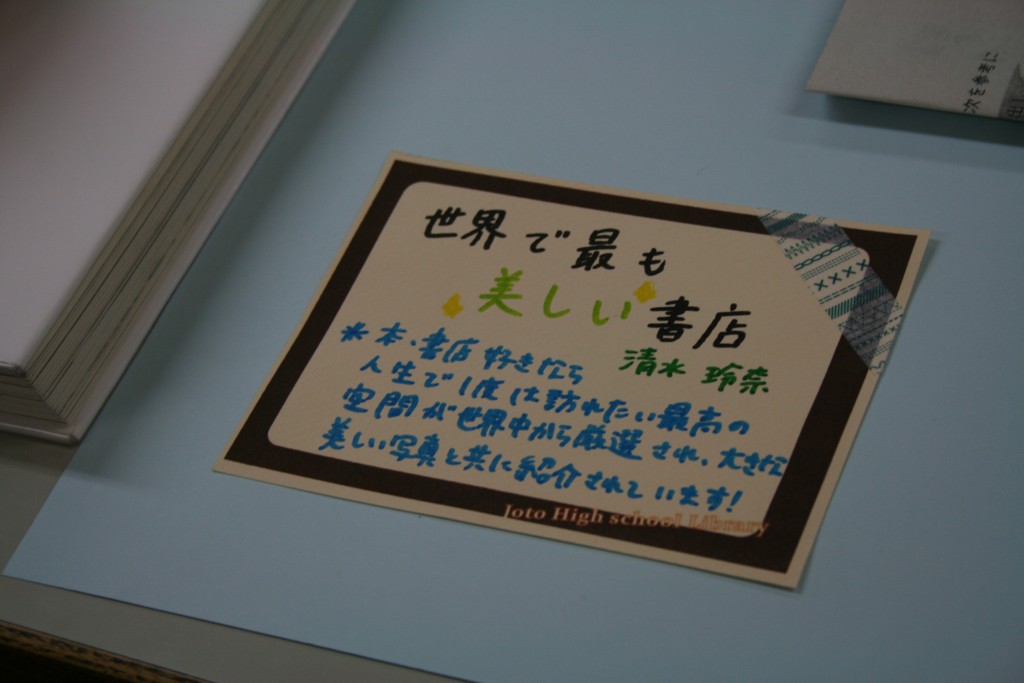 世界で最も
美しい
書店
清水 玲奈
*本・書店好きなら
人生で1度は訪れたい最高の
空間が世界中から厳選され、大きな
美しい写真と共に紹介されています!
Joto High school Library
次を参考に